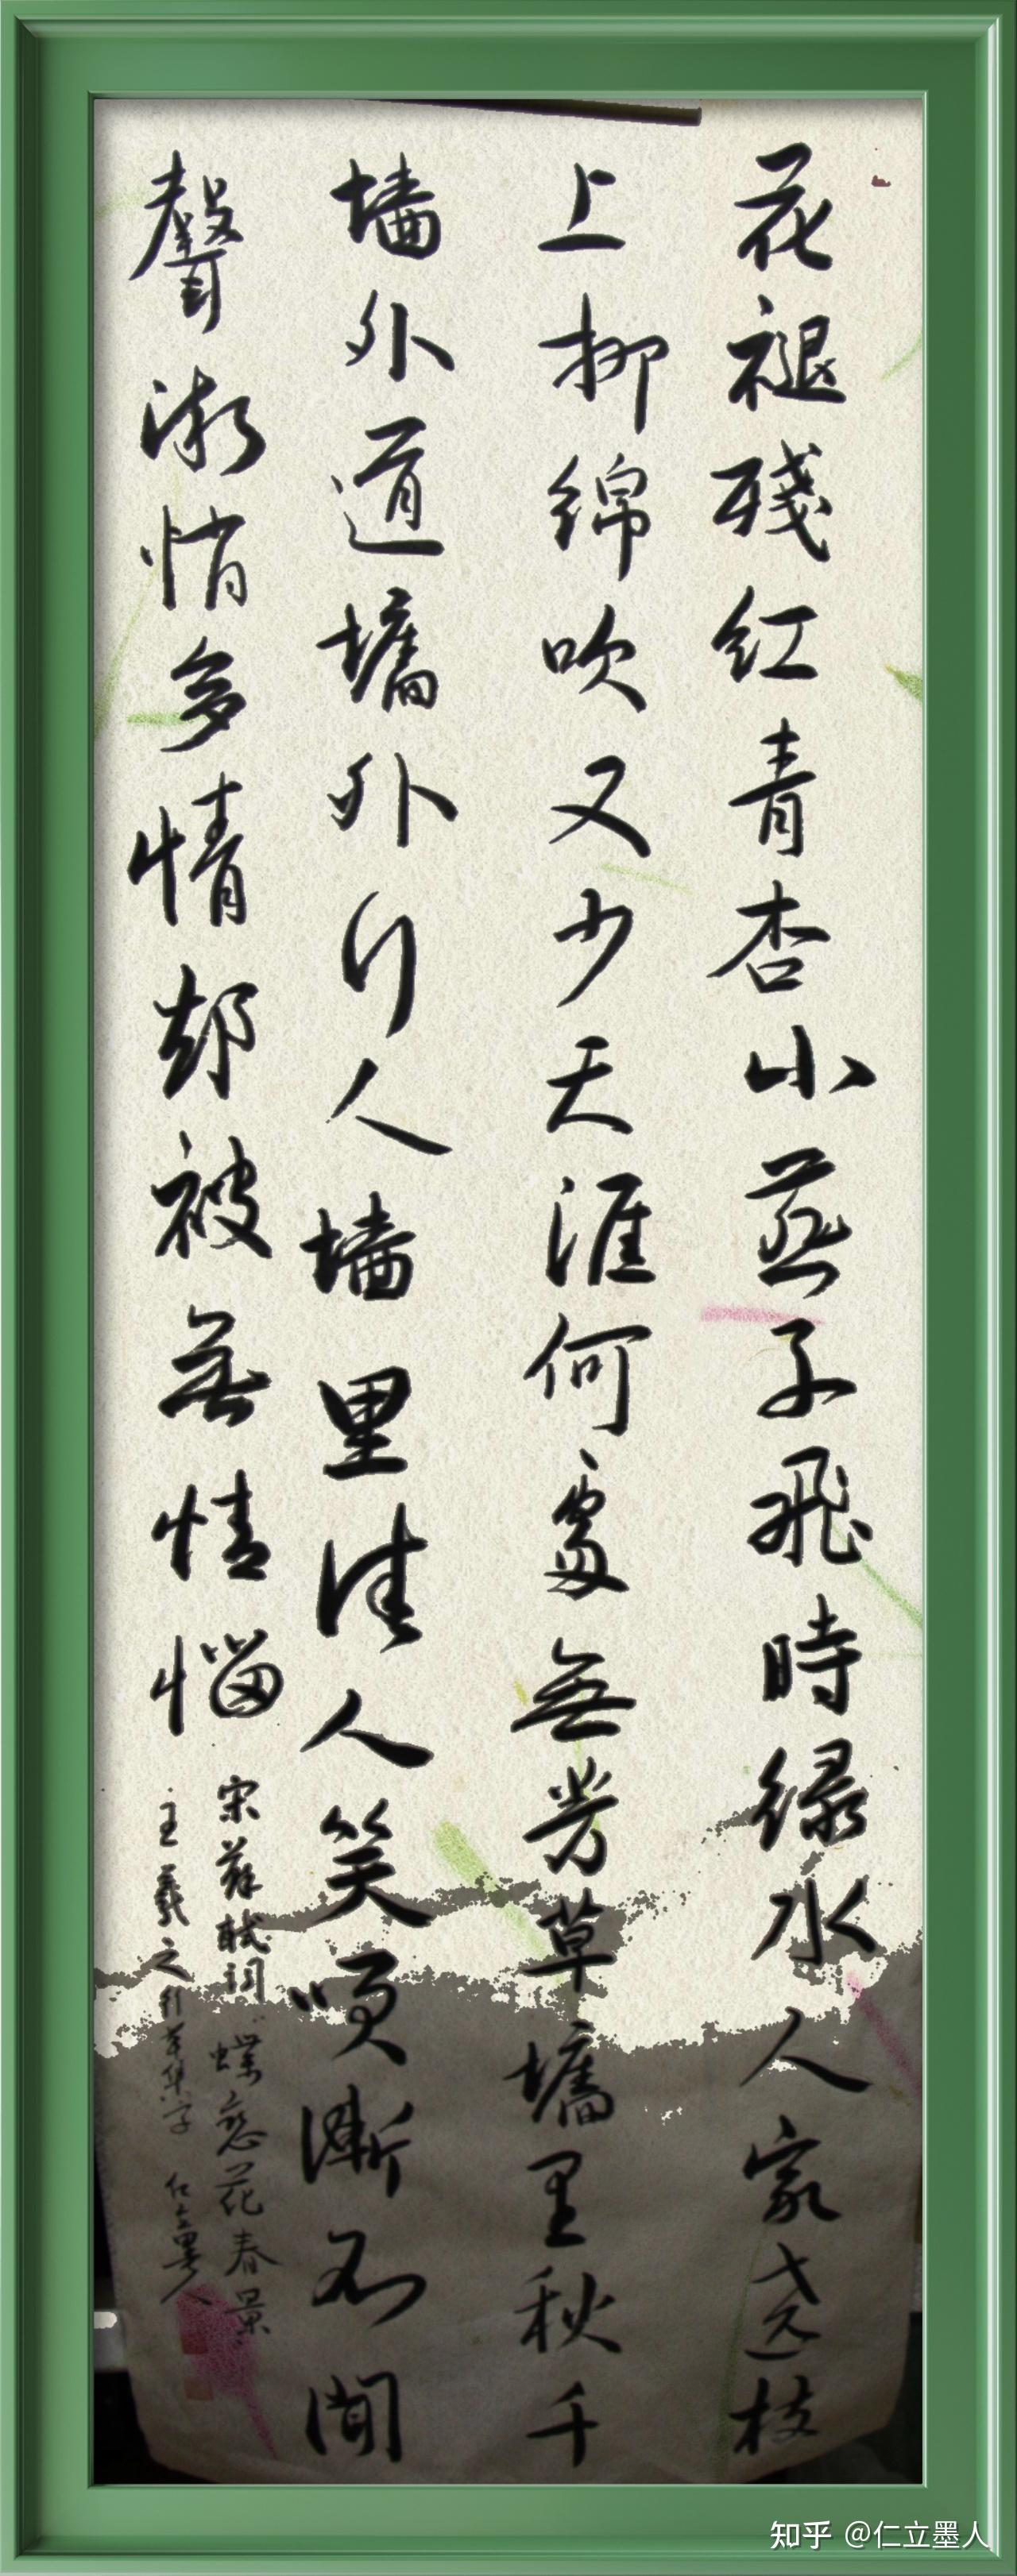 花褪殘红青杏小燕子飛時緑水人家遶枝
上柳綿吹又少天涯何處無芳草墻里秋千
墻外道墻外行人墻里佳人笑笑漸不聞
聲漸悄多情却被無情惱
宋蘇軾词蝶恋花春景
王羲之行草集字 仁立墨人
知乎 @仁立墨人